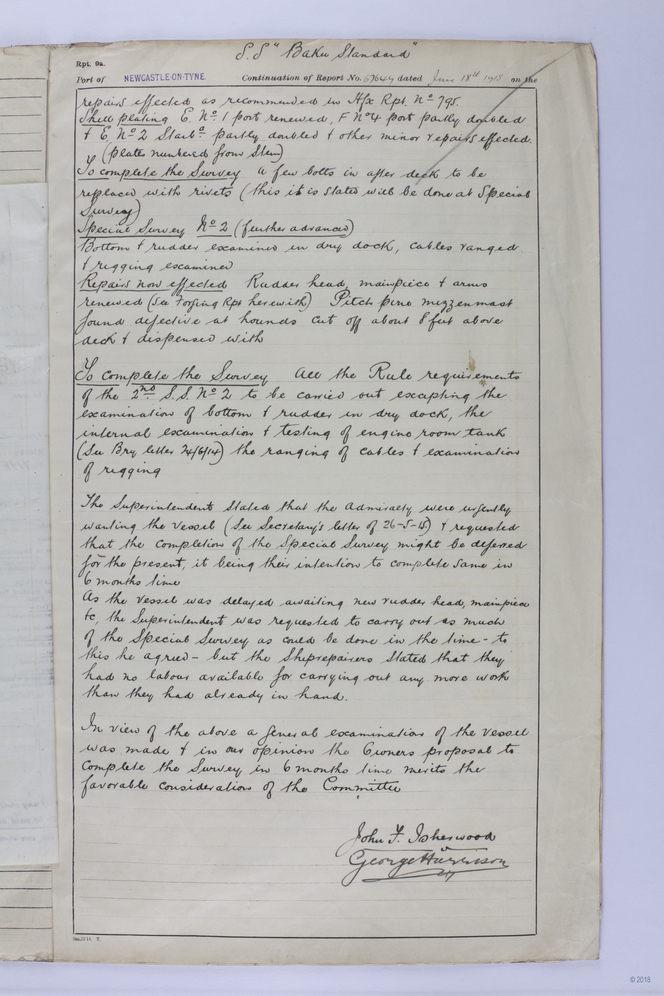 S.S "Baku Standard"
Rpt. 9a.
Port of NEWCASTLE-ON-TYNE Continuation of Report No. dated June 18th 1915 on the
repairs effected as recommended in Hfx Rpt. No 795.
Shell plating E. No 1 port renewed, F No 4 port partly doubled
& E No 2 Starbd partly doubled & other minor repairs effected.
(plates numbered from Stem)
To complete the Survey a few bolts in after deck to be
replaced with rivets (this it is stated will be done at Special
Survey)
Special Survey No 2 (further advanced)
Bottom & rudder examined in dry dock, cables ranged
& rigging examined
Repairs now effected Rudder head, mainpiece & arms
renewed (See Forging Rpt herewith) Pitch pine mizzenmast
found defective at hounds cut off about 8 feet above
deck & dispensed with
To complete the Survey All the Rule requirements
of the 2nd S.S. No 2 to be carried out excepting the
examination of bottom & rudder in dry dock, the
internal examination & testing of engine room tank
(See Bry letter 24/6/14) the ranging of cables & examination
of rigging
The Superintendent stated that the Admiralty were urgently
wanting the vessel (See Secretary's letter of 26-5-15) & requested
that the completion of the Special Survey might be deferred
for the present, it being their intention to complete same in
6 months time
As the vessel was delayed awaiting new rudder head, mainpiece
&c, the Superintendent was requested to carry out as much
of the Special Survey as could be done in the time - to
this he agreed - but the Shiprepairers stated that they
had no labour available for carrying out any more work
than they had already in hand.
In view of the above a general examination of the vessel
was made & in our opinion the Owners proposal to
complete the Survey in 6 months time merits the
favorable consideration of the Committee
John F. Isherwood
George Harrison
© 2018